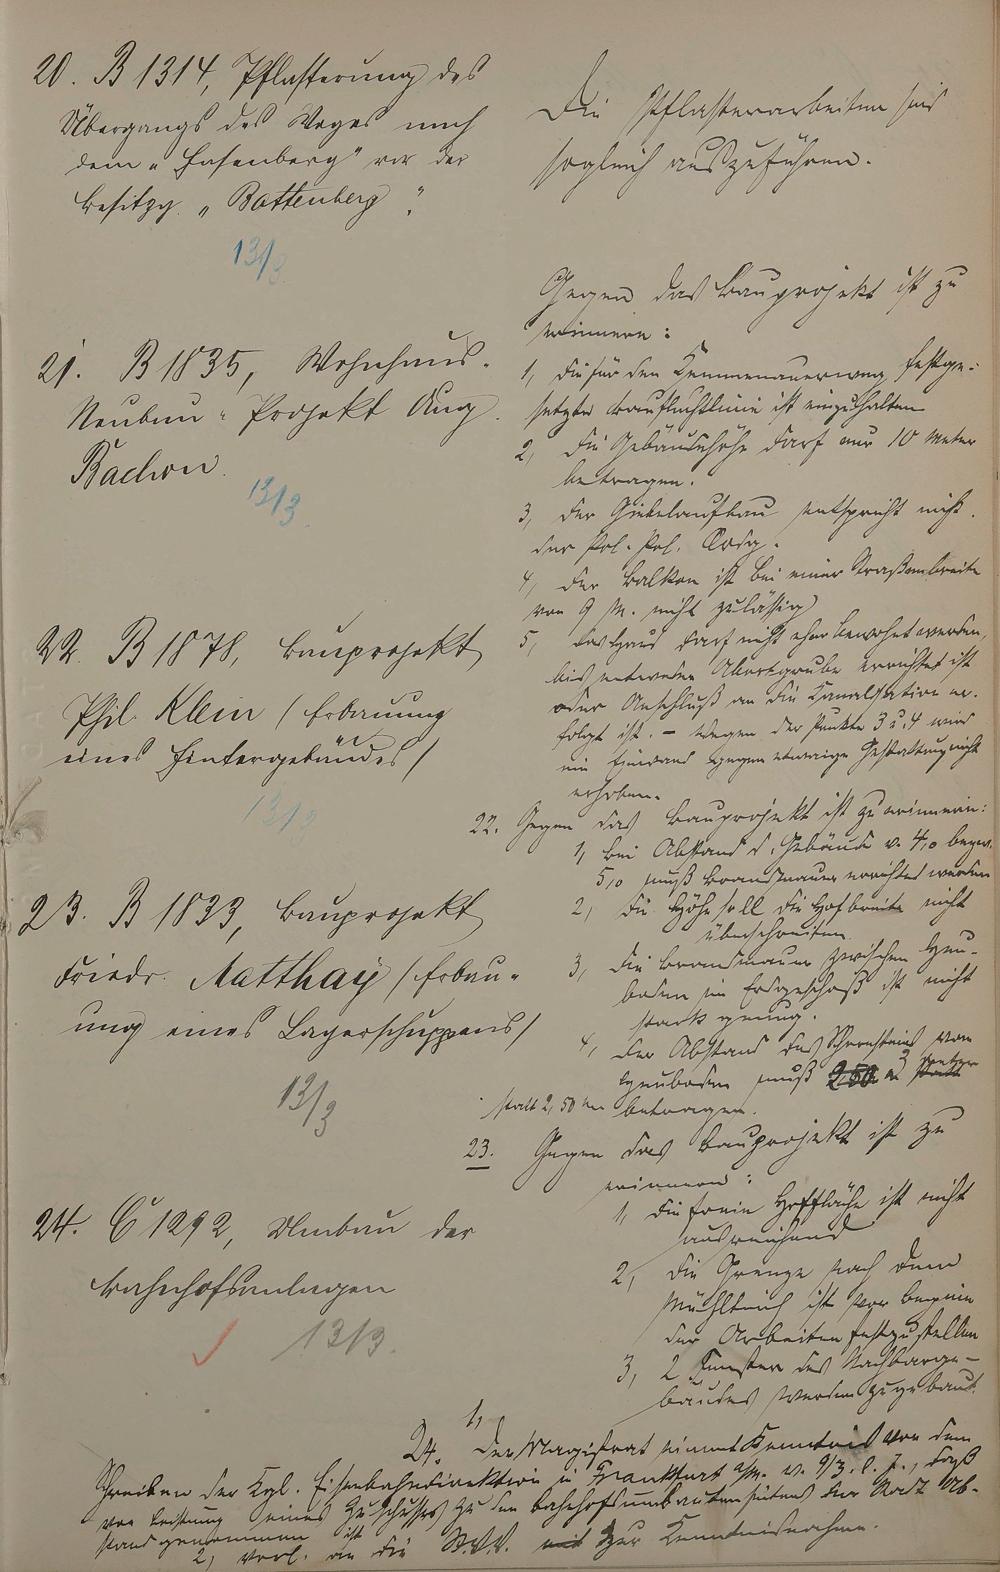 20. B 1314, Pflasterung des
Übergangs des Weges nach
dem „Hasenberg" vor der
Besitzg. „Battenberg".
13/3
Die Pflasterarbeiten sind
sogleich auszuführen.
21. B 1835, Wohnhaus-
Neubau-Projekt Aug.
Bachon.
13/3
Gegen das Bauprojekt ist zu
erinnern:
1, die für den Kemmenauerweg festge-
setzte Baufluchtlinie ist einzuhalten
2, die Gebäudehöhe darf nur 10 Meter
betragen.
3, der Giebelaufbau entspricht nicht
der Pol. Ordg.
4, der Balkon ist bei einer Straßenbreite
von 9 M. nicht zulässig
5, das Haus darf nicht eher bewohnt werden,
bis entweder Abortgrube errichtet ist
oder Anschluß an die Kanalisation er-
folgt ist. – Wegen der Punkte 3 u. 4 wird
ein Einwand gegen etwaige Gestattung nicht
erhoben.
22. B 1878, Bauprojekt
Phil. Klein / Erbauung
eines Hintergebäudes /
13/3
22. Gegen das Bauprojekt ist zu erinnern:
1, bei Abstand d. Gebäude v. 4,0 bezw.
5,0 muß Brandmauer errichtet werden
2, die Höhe soll die Hofbreite nicht
überschreiten
3, die Brandmauer zwischen Heu-
boden im Erdgeschoß ist nicht
stark genug.
4, der Abstand des Schornsteins vom
Heuboden muß 3 Meter
statt 2,50 m betragen.
23. B 1833, Bauprojekt
Friedr. Matthay / Erbau-
ung eines Lagerschuppens /
13/3
23. Gegen das Bauprojekt ist zu
erinnern:
1, die freie Hoffläche ist nicht
ausreichend
2, die Grenze nach dem
Mühlteich ist vor Beginn
der Arbeiten festzustellen
3, 2 Fenster des Nachbarge-
bäudes werden zugebaut.
24. C 1292, Umbau der
Bahnhofsanlagen
13/3.
24. 1, Der Magistrat nimmt Kenntnis von dem
Schreiben der Kgl. Eisenbahndirektion in Frankfurt a/M. v. 9/3. l. J., daß
von Leistung eines Zuschusses zu den Bahnhofsumbauten seitens der Stadt Ab-
stand genommen ist
2, Vorl. an die St.V.V. zur Kenntnisnahme.